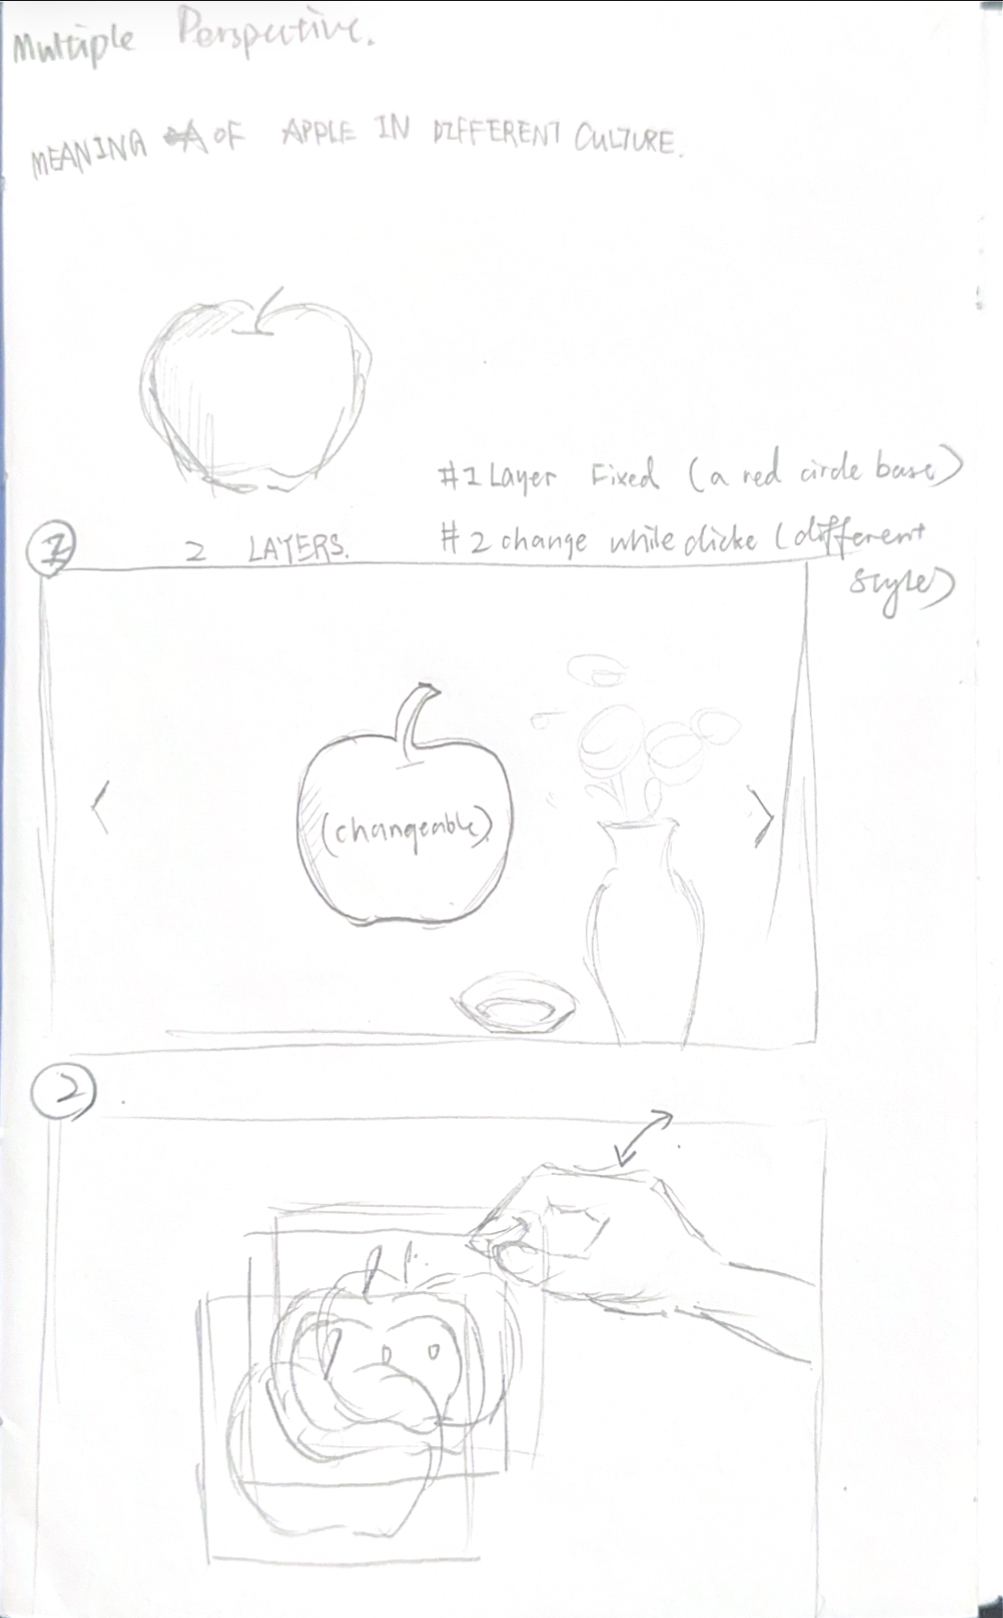 Multiple Perspective.
MEANING OF APPLE IN DIFFERENT CULTURE.
#1 Layer Fixed (a red circle base)
2 LAYERS.
#2 change while clicke (different
style)
1
(changeable)
2